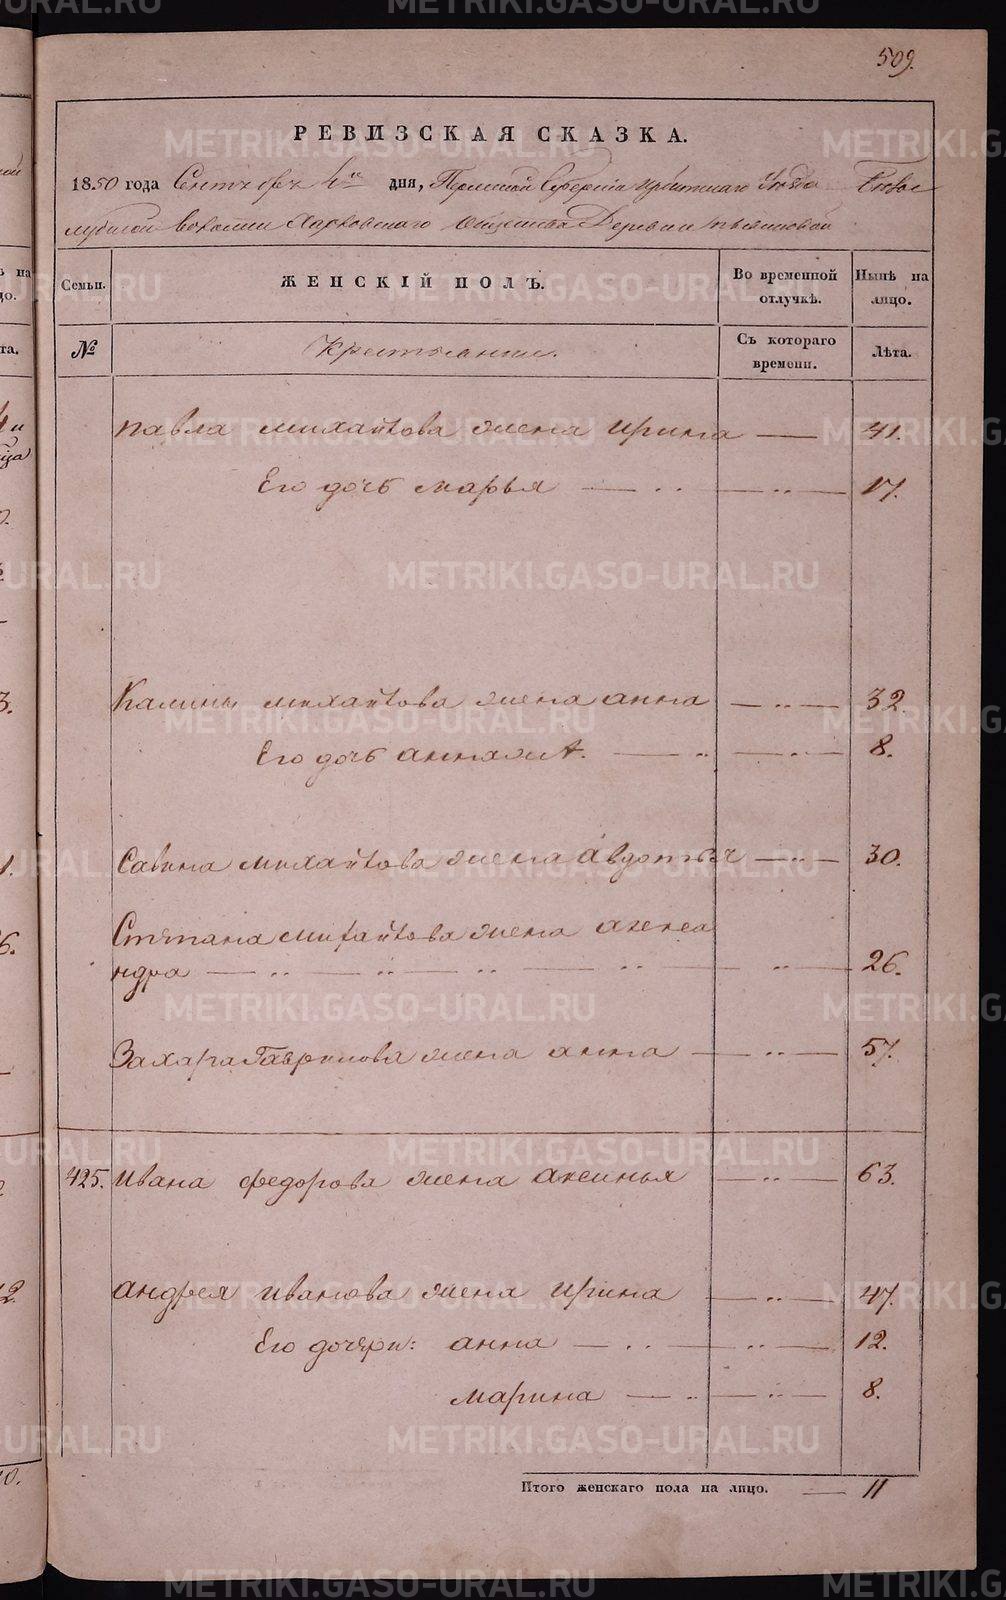 509.
РЕВИЗСКАЯ СКАЗКА.
1850 года Сентября дня, Пермской Губернии Ирбитского Уезда Белос
лудской волости Харловского общества Деревни
Семьи. ЖЕНСКІЙ ПОЛЪ. Во временной отлучкѣ. Нынѣ на лицо.
№ Крестьянии. Съ котораго времени. Лѣта.
Павла михайлова жена ирина — 41.
Его дочь марья — 17.
Калины михайлова жена анна — 32.
Его дочь — 8.
Савина михайлова жена авдотья — 30.
Степана михайлова жена алекса
ндра — 26.
Захара Гаврилова жена анна — 57.
425. ивана федорова жена аксинья — 63.
андрея иванова жена ирина — 47.
Его дочери: анна — 12.
марина — 8.
Итого женскаго пола на лицо. — 11
METRIKI.GASO-URAL.RU